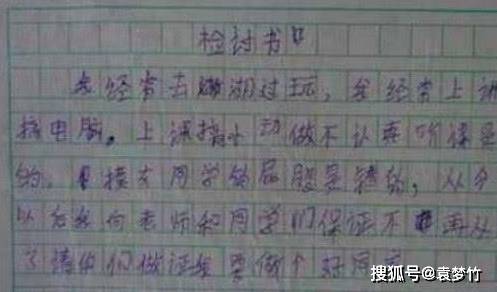 检讨书
我经常去湖边玩，我经常上课
玩电脑。上课搞小动做不认真听课是
的。摸女同学的屁股是错的，从今
以后我向老师和同学们保证不再从
了请你们做证我要做个好同学
搜狐号@袁梦竹